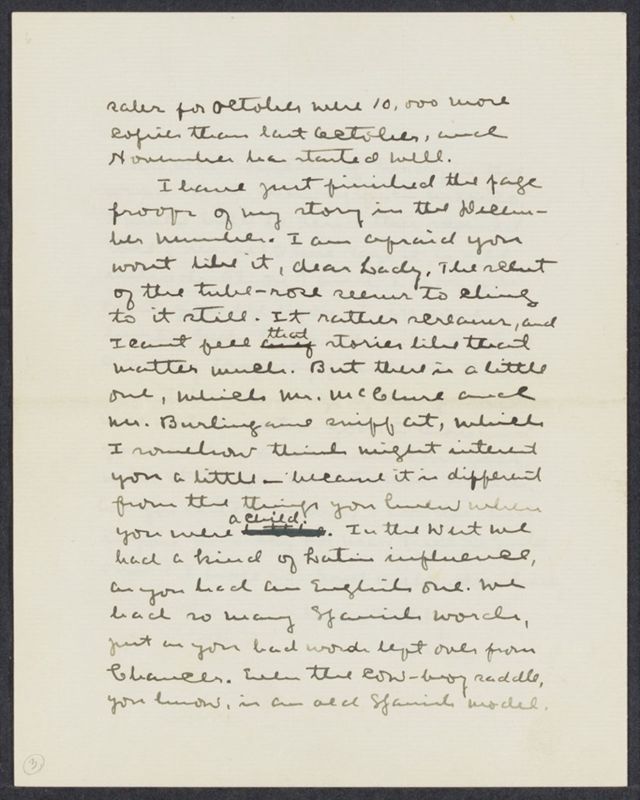 sales for October were 10,000 more
copies than last October, and
November has started well.
I have just finished the page
proofs of my story in the Decem-
ber number. I am afraid you
wont like it, dear Lady. The scent
of the tube-rose seems to cling
to it still. It rather screams, and
I cant feel that stories like that
matter much. But there is a little
one, which Mr. McClure and
Mr. Burlingame sniff at, which
I somehow think might interest
you a little — because it is different
from the things you knew when
you were a child. In the West we
had a kind of Latin influence,
as you had an English one. We
had so many Spanish words,
just as you had words left over from
Chaucer. Even the cow-boy saddle,
you know, is an old Spanish model.
3